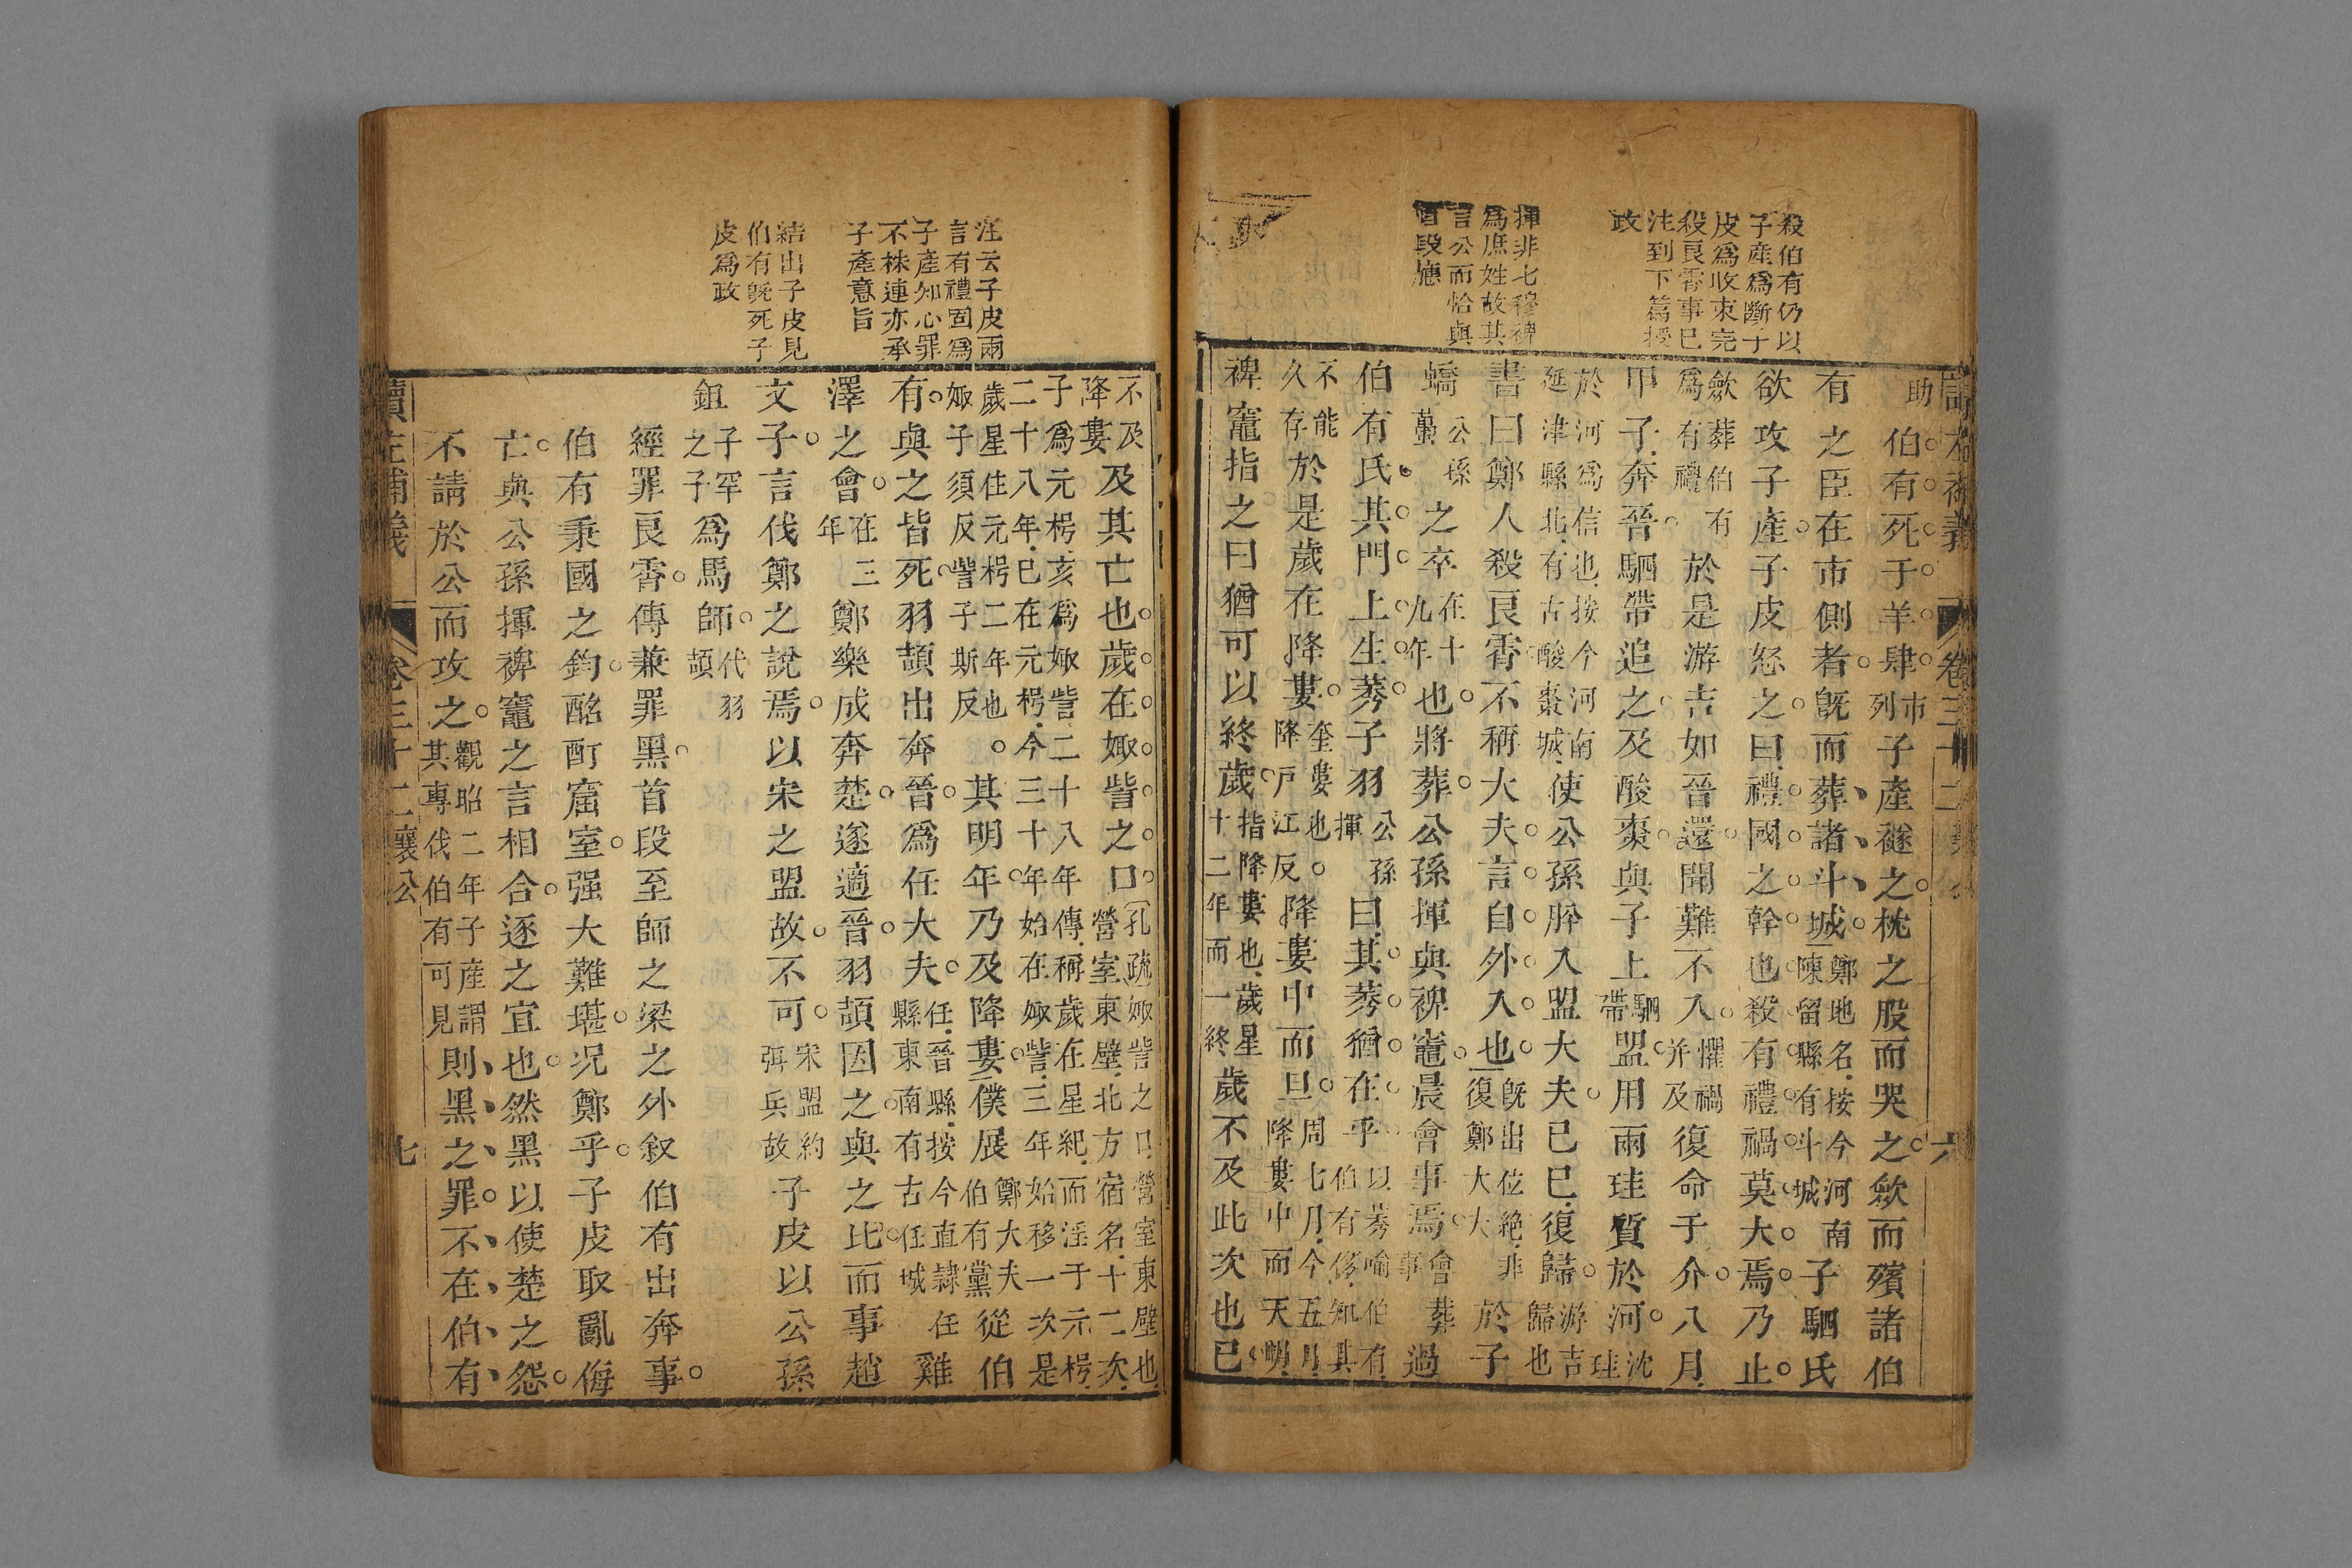 讀左補義 卷三十二 襄公 六
殺伯有仍以
子產爲斷子
皮爲收束完
殺良霄事已
注到下篇授
政
揮非七穆裨
爲庶姓故其
言公而恰與
首段應
助伯有死于羊肆市列子產襚之枕之股而哭之斂而殯諸伯
有之臣在市側者既而葬諸斗城鄭地名按今河南陳留縣有斗城子駟氏
欲攻子產子皮怒之曰禮國之幹也殺有禮禍莫大焉乃止
斂葬伯有爲有禮於是游吉如晉還聞難不入懼禍并及復命于介八月
甲子奔晉駟帶追之及酸棗與子上駟帶盟用兩珪質於河沈珪
於河爲信也按今河南延津縣北有古酸棗城使公孫肸入盟大夫己巳復歸游吉歸也
書曰鄭人殺良霄不稱大夫言自外入也既出位絕非復鄭大大於子
蟜公孫蠆之卒在十九年也將葬公孫揮與裨竈晨會事焉會葬事過
伯有氏其門上生莠子羽公孫揮曰其莠猶在乎以莠喻伯有伯有侈知其
不能久存於是歲在降婁奎婁也降戸江反降婁中而旦周七月今五月降婁中而天明
裨竈指之曰猶可以終歲指降婁也歲星十二年而一終歲不及此次也已
注云子皮兩
言有禮固爲
子產知心罪
不株連亦承
子產意旨
結出子皮見
伯有既死子
皮爲政
不及降婁及其亡也歲在娵訾之口孔疏娵訾之口營室東壁也營室東壁北方宿名十二次
子爲元枵亥爲娵訾二十八年傳稱歲在星紀而淫于元枵二十八年已在元枵今三十年始在娵訾三年始移一次是
歲星住元枵二年也娵子須反訾子斯反其明年乃及降婁僕展鄭大夫伯有黨從伯
有與之皆死羽頡出奔晉爲任大夫任晉縣按今直隸任縣東南有古任城雞
澤之會在三年鄭樂成奔楚遂適晉羽頡因之與之比而事趙
文子言伐鄭之說焉以宋之盟故不可宋盟約弭兵故子皮以公孫
鉏子罕之子爲馬師代羽頡
經罪良霄傳兼罪黑首段至師之梁之外叙伯有出奔事
伯有秉國之鈞酩酊窟室强大難堪况鄭乎子皮取亂侮
亡與公孫揮裨竈之言相合逐之宜也然黑以使楚之怨
不請於公而攻之觀昭二年子產謂其專伐伯有可見則黑之罪不在伯有
讀左補義 卷三十二 襄公 七